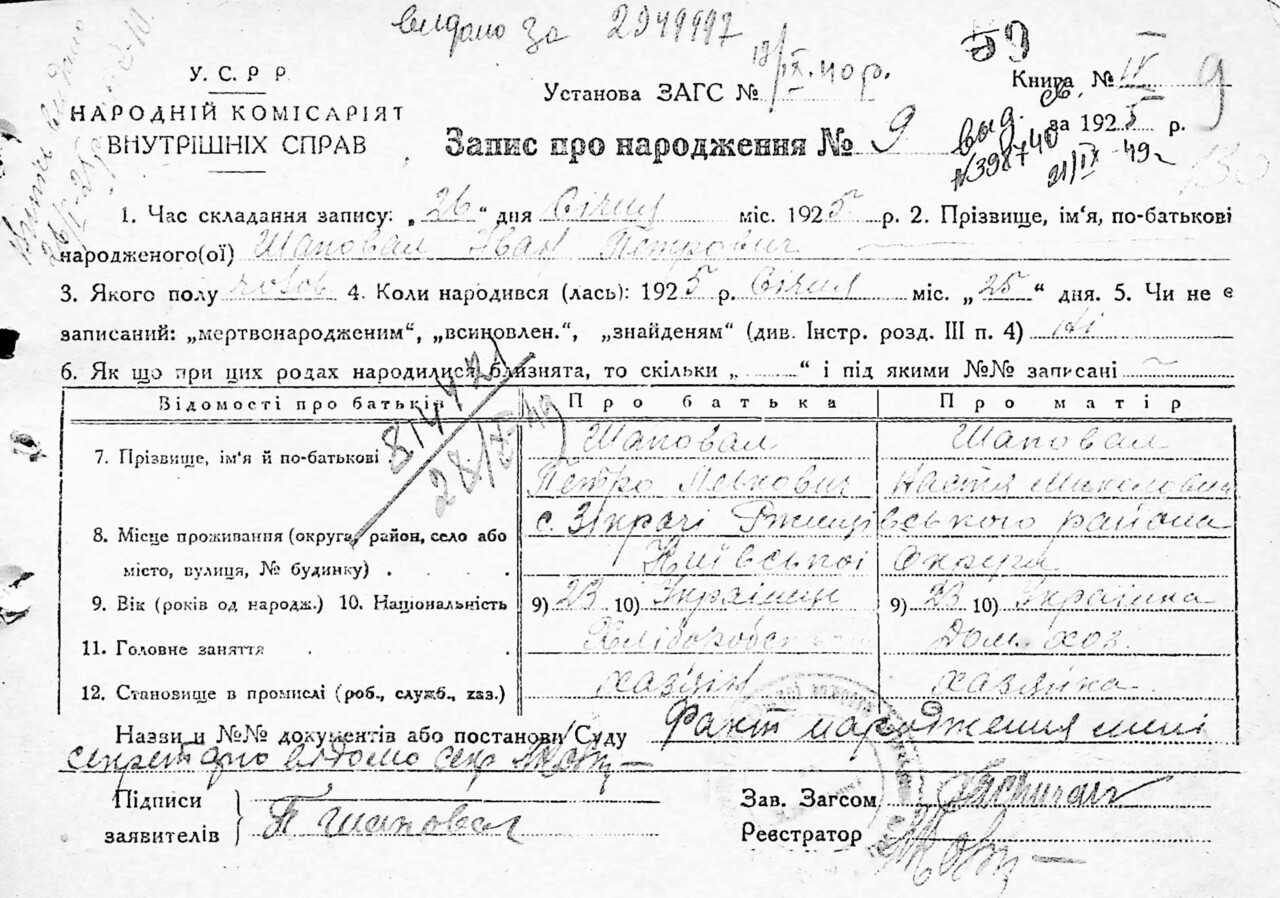 видано за 2949997
18/IX-40 р.
59
У. С. Р. Р.
НАРОДНІЙ КОМІСАРІЯТ
ВНУТРІШНІХ СПРАВ
Установа ЗАГС №
Книга № IV
9
за 1925 р.
Запис про народження № 9
вид. св.
№398740
21/IX-49 г
1. Час складання запису: „26“ дня Січня міс. 1925 р. 2. Прізвище, ім'я, по-батькові
народженого(ої) Шаповал Іван Петрович
3. Якого полу чолов. 4. Коли народився (лась): 1925 р. Січня міс. „25“ дня. 5. Чи не є
записаний: „мертвонародженим“, „всиновлен.“, „знайденям“ (див. Інстр. розд. III п. 4) Ні
6. Як що при цих родах народилися близнята, то скільки „ “ і під якими №№ записані
Відомості про батьків Про батька Про матір
7. Прізвище, ім'я й по-батькові Шаповал Шаповал
Петро Настя
814471
28/IX-49
8. Місце проживання (округа, район, село або с. Зікрачі Ржищівського района
місто, вулиця, № будинку) . . . Київської Округи
9. Вік (років од народж.) 10. Національність 9) 23 10) Українець 9) 23 10) Українка
11. Головне заняття . . Хліборобство Дом. хоз.
12. Становище в промислі (роб., служб., хаз.) хазяїн хазяйка
Назви и №№ документів або постанови Суду Факт народження мині
секретарю відомо секр
Підписи
заявителів П Шаповал
Зав. Загсом
Реєстратор